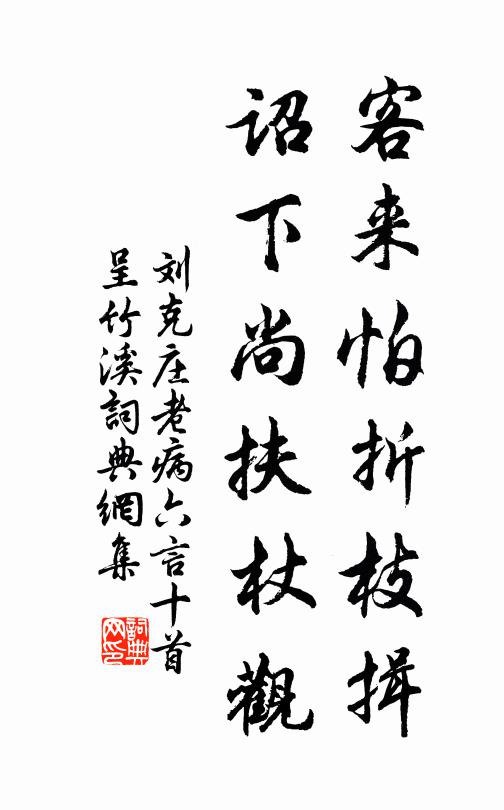 客来怕折枝揖
詔下尚扶杖觀
刘克庄老病六言十首
呈竹溪詞典網集
詞典
网印